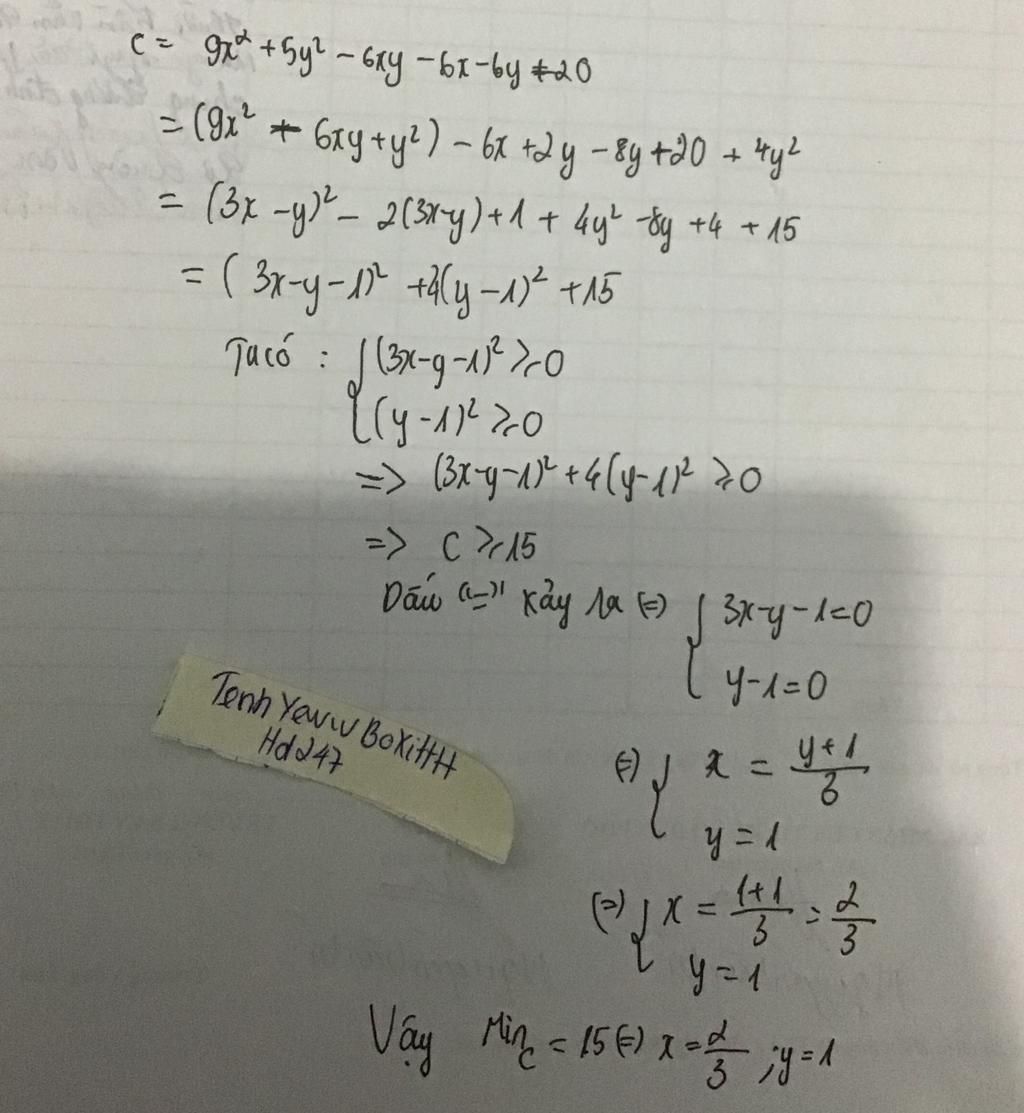 C = 9x² + 5y² - 6xy - 6x - 6y + 20
= (9x² - 6xy + y²) - 6x + 2y - 8y + 20 + 4y²
= (3x - y)² - 2(3x-y) + 1 + 4y² - 8y + 4 + 15
= (3x - y - 1)² + 4(y - 1)² + 15
Ta có : { (3x-y-1)² ≥ 0
(y-1)² ≥ 0
=> (3x-y-1)² + 4(y-1)² ≥ 0
=> C ≥ 15
Dấu "=" xảy ra (=) { 3x-y-1=0
y-1=0
(=) { x = \frac{y+1}{3}
y = 1
(=) { x = \frac{1+1}{3} = \frac{2}{3}
y = 1
Vậy Min_C = 15 (=) x = \frac{2}{3} ; y = 1
Tenh Yeww BoXiHH
Hd247